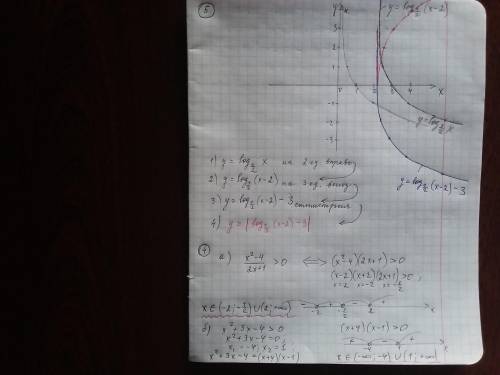 5
y = log_{1/2}(x-2)
y
x
0 1 2 3 4
-1
-2
-3
y = log_{1/2} x
y = log_{1/2}(x-2)-3
1) y = log_{1/2} x на 2 ед. вправо
2) y = log_{1/2}(x-2) на 3 ед. вниз
3) y = log_{1/2}(x-2)-3 симметрия
4) y = |log_{1/2}(x-2)-3|
4
а) \frac{x²-4}{2x+1} > 0 ⟺ (x²-4)(2x+1)>0
(x-2)(x+2)(2x+1)>0;
x=2 x=-2 x=-\frac{1}{2}
x∈(-2;-\frac{1}{2})∪(2;+∞)
- + - +
-2 -\frac{1}{2} 2 x
б) x²+3x-4>0 (x+4)(x-1)>0
x²+3x-4=0,
x₁=-4; x₂=1
+ - +
-4 1 x
x²+3x-4=(x+4)(x-1) x∈(-∞;-4)∪(1;+∞)